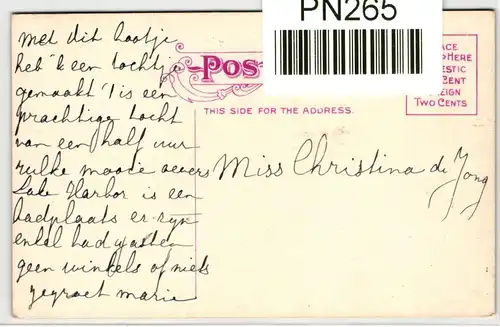 PN265
Met dit bootje
heb ik een tochtje
gemaakt 't is een
prachtige tocht
van een half uur
zulke mooie oevers
Lake Harbor is een
badplaats er zijn
enkel badgasten
geen winkels of niets
gegroet Marie
Pos
THIS SIDE FOR THE ADDRESS.
ACE
HERE
ESTIC
CENT
EIGN
TWO CENTS
Miss Christina de Jong